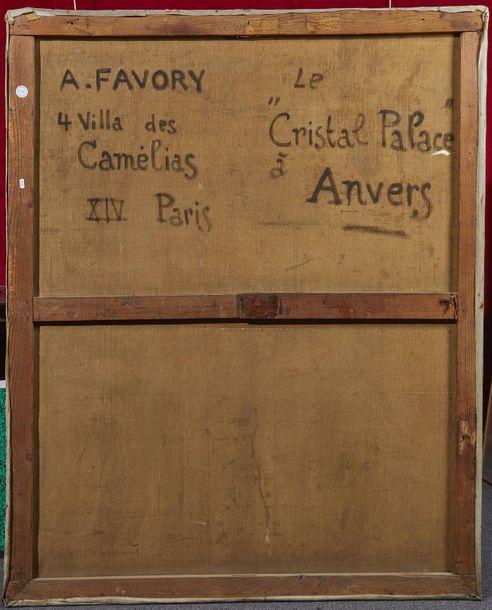 A. FAVORY
4 Villa des
Camélias
XIV Paris
Le
"Cristal Palace"
à
Anvers